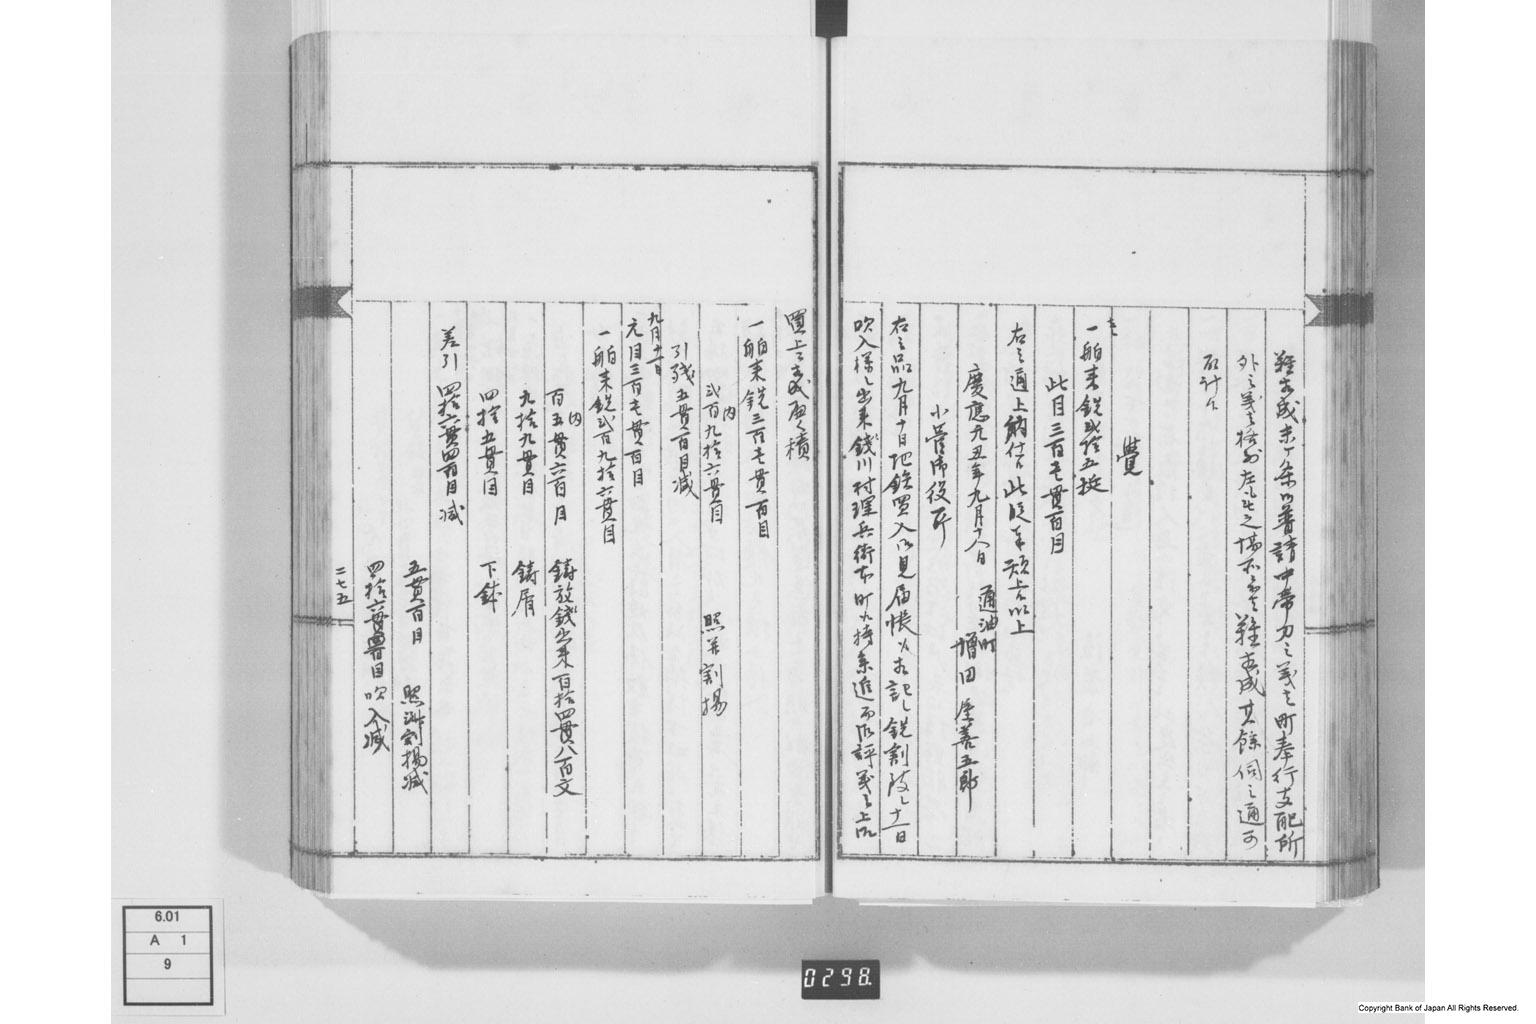 難相成ニ付御普請中帯刀之義は町奉行支配所
外之義は格別左も無之場所ニ而は難相成其余伺之通可
取計候
覚
一舶来銑弐拾五挺
此目三百壱貫百目
右之通上納仕候此段奉願上候以上
慶應元丑年九月十八日
通油町
増田屋善五郎
小菅御役所
右之品九月十日地銑買入御見届帳江相記し銑割致し十一日
吹入様し出来銭川村理兵衛本町江持参追而御評義之上御
買上之義取積
一舶来銑三百壱貫百目
内
弐百九拾六貫目
引残五貫百目減
九月十一日
元目三百壱貫百目
一舶来銑弐百九拾六貫目
内
百五貫六百目 鋳放銭出来百拾四貫八百文
九拾九貫目 鋳屑
四拾五貫目 下鉢
差引 四拾六貫四百目減
五貫百目
四拾六貫四百目吹入減
二七五
6.01
A 1
9
0298.
Copyright Bank of Japan All Rights Reserved.